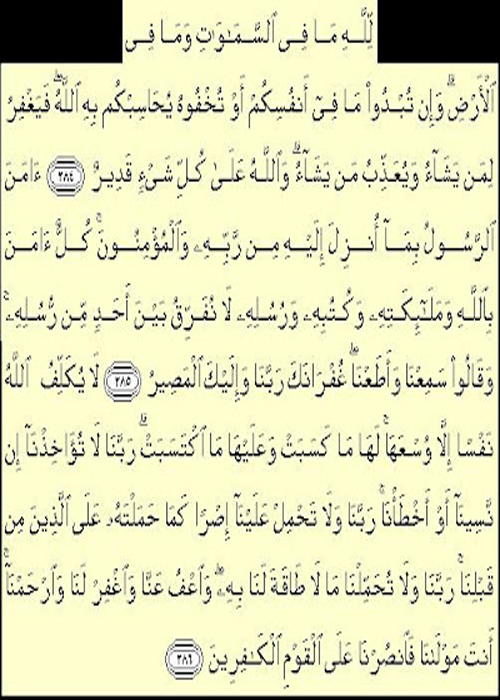 لِّلَّـهِ مَـا فِـى ٱلسَّـمَـٰوَٰتِ وَمَـا فِـى
ٱلْأَرْضِ ۗ وَإِن تُـبْـدُوا۟ مَـا فِـىٓ أَنفُسِكُمْ أَوْ تُخْفُوهُ يُحَاسِبْكُم بِهِ ٱللَّهُ ۖ فَيَغْفِرُ
لِمَن يَشَآءُ وَيُعَذِّبُ مَن يَشَآءُ ۗ وَٱللَّـهُ عَلَـىٰ كُـلِّ شَىْءٍ قَدِيرٌ ﴿٢٨٤﴾ ءَامَـنَ
ٱلرَّسُـولُ بِمَـآ أُنـزِلَ إِلَيْـهِ مِـن رَّبِّـهِۦ وَٱلْمُؤْمِنُـونَ ۚ كُـلٌّ ءَامَـنَ
بِٱللَّـهِ وَمَلَـٰٓئِكَـتِهِۦ وَكُـتُبِهِۦ وَرُسُلِهِۦ لَا نُفَـرِّقُ بَيْـنَ أَحَـدٍ مِّـن رُّسُلِهِۦ ۚ
وَقَالُوا۟ سَمِعْنَا وَأَطَعْنَا ۖ غُفْرَانَكَ رَبَّنَا وَإِلَيْكَ ٱلْمَصِيرُ ﴿٢٨٥﴾ لَا يُكَلِّفُ ٱللَّهُ
نَفْسًا إِلَّا وُسْعَهَا ۚ لَهَا مَا كَسَبَتْ وَعَلَيْهَا مَا ٱكْتَسَبَتْ ۗ رَبَّنَا لَا تُؤَاخِذْنَآ إِن
نَّسِينَآ أَوْ أَخْطَأْنَا ۚ رَبَّنَا وَلَا تَحْمِلْ عَلَيْنَآ إِصْرًا كَمَا حَمَلْتَهُۥ عَلَى ٱلَّذِينَ مِن
قَبْلِنَا ۚ رَبَّنَا وَلَا تُحَمِّلْنَا مَا لَا طَاقَةَ لَنَا بِهِۦ ۖ وَٱعْفُ عَنَّا وَٱغْفِرْ لَنَا وَٱرْحَمْنَآ ۚ
أَنتَ مَوْلَىٰنَا فَٱنصُرْنَا عَلَى ٱلْقَوْمِ ٱلْكَـٰفِرِينَ ﴿٢٨٦﴾